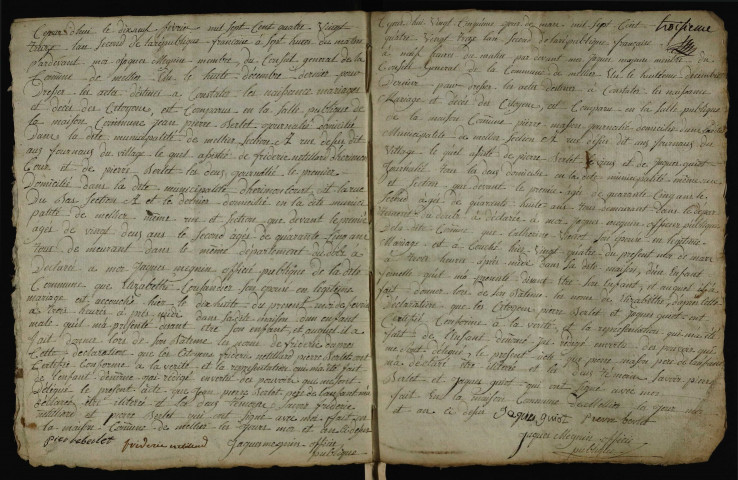 Cejourdhui le dixneuf fevrier mil sept Cent quatre Vingt
treize lan Second de la republique francoise à sept heures du matin
pardevant moi jaque megnin membre du Conseil general de la
Commune de mellier Elu le huit decembre dernier pour
Dresser les acte destinés a Constater les naissances mariages
et décès des Citoyens, est Comparu en la Salle publique de
la maison Commune jean pierre Berlot journalié domicilié
Dans la dite municipalité de mellier Section A rue
aux journaux du village le quel assisté de frideric netillard
Cour et de pierre Berlot tous deux journallié le premier
Domicilié dans la dite municipalité dit la rue
Du Bas Section A et le dernier domicilié en la dite munici
palité de mellier même rue et Section que devant le premier
agés de vingt deux ans le Second agés de quarante Cinq ans
tous de meurant dans le même departement du doubs à
Declaré a moi Jaques megnin officié publique de la dite
Commune que Elizabeth son epouse en legitime
mariage est accouché hier le dix huitte du present mois de fevrier
a trois heures à pres midi dans sa dite maison d'un enfant
male quil ma presenté etre son enfant et auquel il a
fait donné lors de son Batême le nom de frideric
Cette declaration que les Citoyens frideric netillard pierre Berlot ont
Certifié Conforme à la verité et la representation qui ma été fait
de lenfant denomé jai redigé en vertu des pouvoirs qui me sont
Delegué le present acte que jean pierre Berlot pere de lenfant ma
declaré etre illiteré et les deux temoins Savoir frideric
netillard et pierre Berlot qui ont signé avec moi fait en
la maison Commune de mellier les jours mois et an
pierre berlot frideric netilard Jaques megnin officié
publique
troisieme
Cejourdhui Vingt Cinquieme jour de mars mil Sept Cent
quatre Vingt treize lan Second de la republique francoise
à neuf heures du matin par devant moi jaques megnin membre du
Conseil General de la Commune de mellier Elu le huitieme decembre
Dernier pour dresser les acte destinés à Constater les naissances
Mariage et décès des Citoyens, est Comparu en la Salle publique
de la maison Commune pierre masson journalié domicilié dans la dite
Municipalité de mellier Section A rue dit aux journaux du
Village le quel assisté de pierre Berlot et de jaques guiot
tous les deux domicilié en la dite municipalité même rue
et Section que devant le premier agés de quarante Cinq ans le
Second agés de quarante huit ans tous demeurant dans le depar
tement du doubs à déclaré a moi jaques megnin officié publique
De la dite Commune que Catherine son epouse en legitime
Mariage est à Couché hier Vingt quatre du present mois de mars
à trois heures après midi dans sa dite maison, d'un Enfant
femelle quil ma presenté etre son Enfant, et auquel il a
fait donner lors de son Batême les noms de Elizabette, dapres cette
declaration que les Citoyens pierre Berlot et jaques guiot ont
Certifié Conforme à la verité et la representation qui ma été
fait de lEnfant denomé jai redigé en vertu des pouvoirs qui
me sont delegué le present acte que pierre masson pere de lenfant
ma declaré etre illiteré et les deux temoins savoir pierre
Berlot et jaques guiot qui ont signé avec moi
fait en la maison Commune de mellier les jours mois
et an ci desus Jaques guiot Pierre berlot
jaques Megnin officié
publique